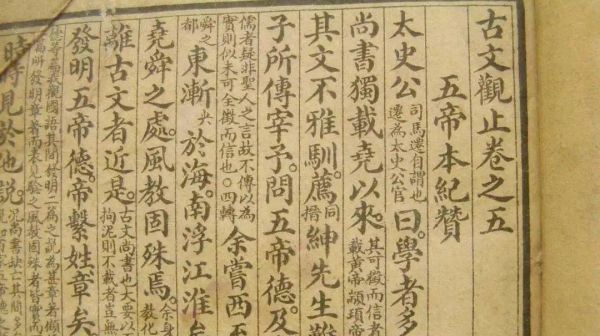 古文觀止卷之五
五帝本紀贊
太史公司馬遷自謂也遷為太史公官曰。學者多
尚書獨載堯以來。其可徵而信者載黃帝顓頊帝
其文不雅馴。薦同搢紳先生難
子所傳宰予。問五帝德及
儒者疑非聖人之言故不傳以為實則似未可全徵而信也○四轉余嘗西
舜之都東漸尖於海。南浮江淮矣
堯舜之處。風教固殊焉。余身教化
離古文者近是。古文尚書也大要以拘泥則不載者豈無
發明五帝德。帝繫姓章矣
觀國語其間發明二篇之說為甚章著
時時見於他說。